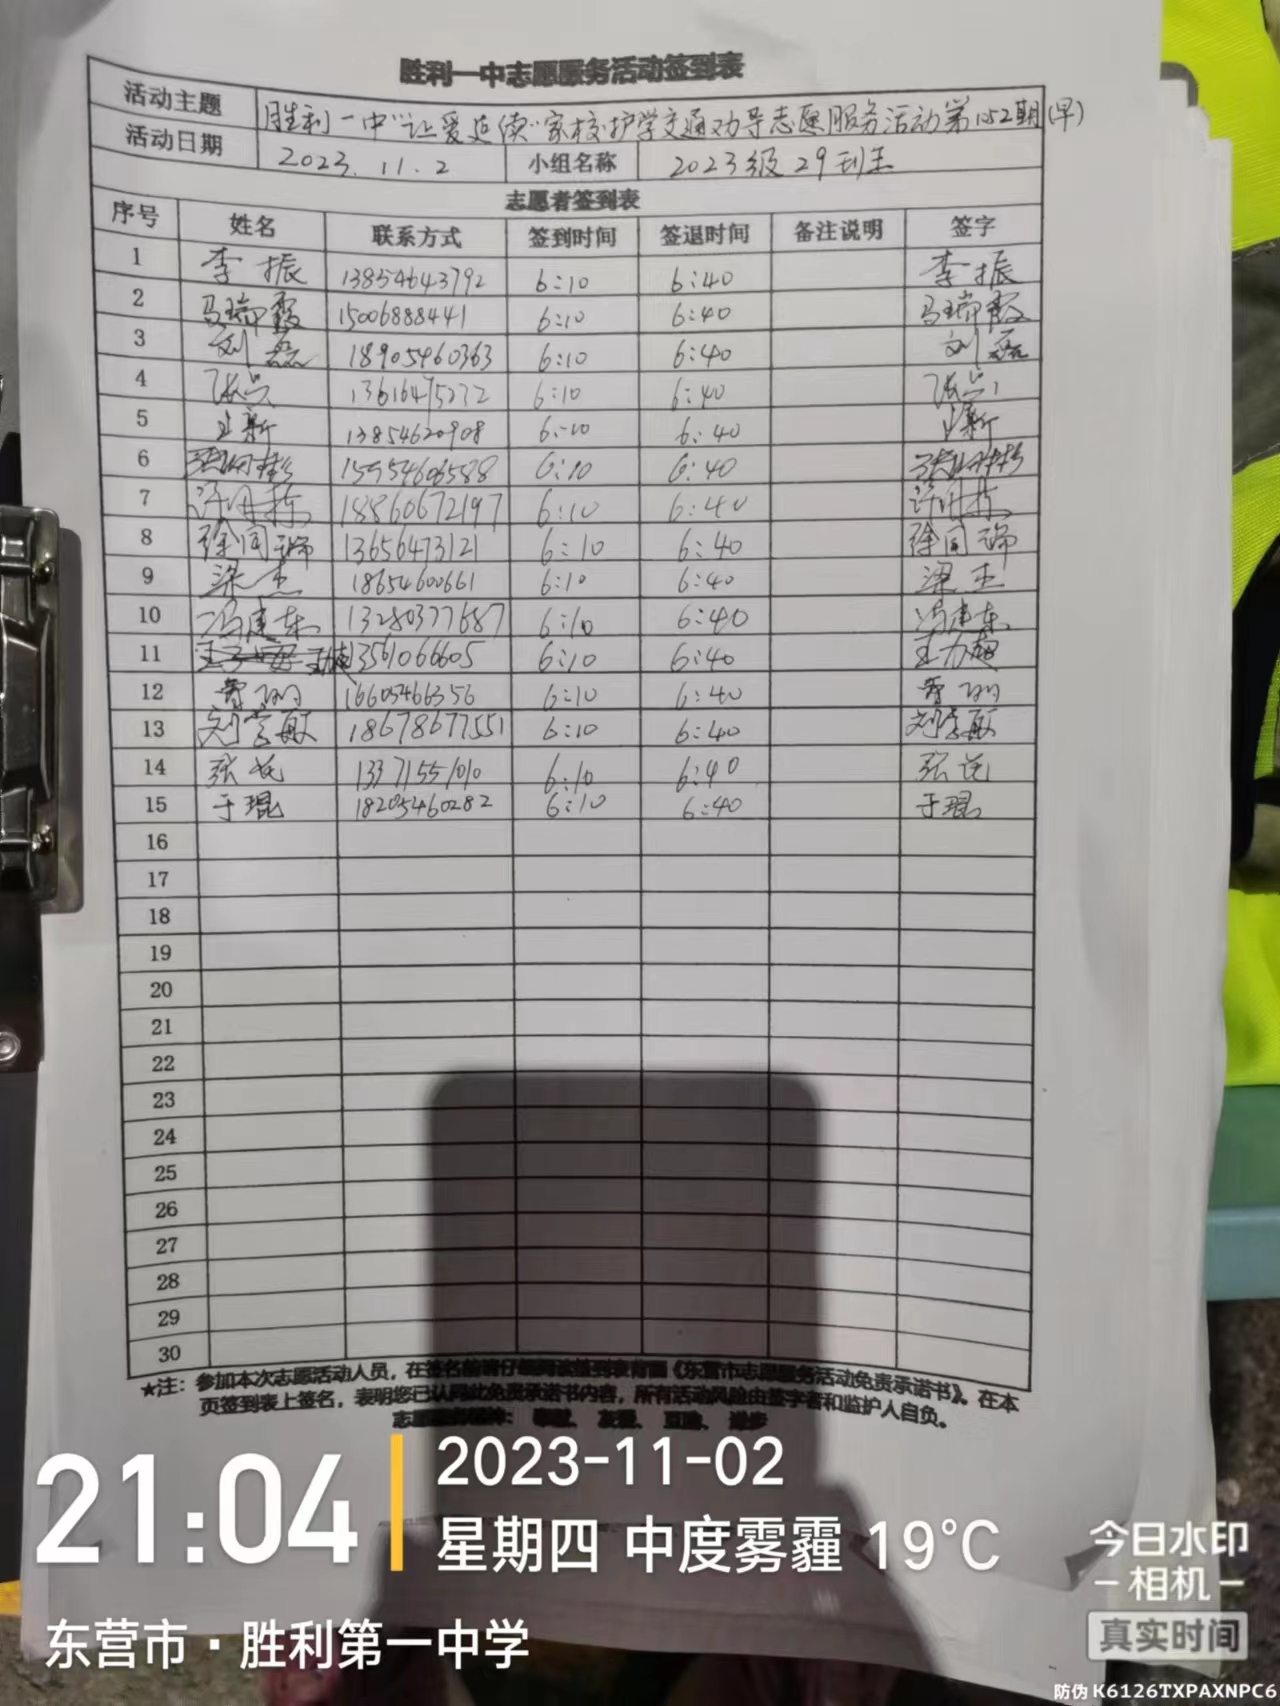 胜利一中志愿服务活动签到表
活动主题 胜利一中“让爱延续”家校护学交通劝导志愿服务活动第152期(早)
活动日期 2023.11.2 小组名称 2023级29班
志愿者签到表
序号 姓名 联系方式 签到时间 签退时间 备注说明 签字
1 李振 13854643792 6:10 6:40 李振
2 马瑞霞 15006888441 6:10 6:40 马瑞霞
3 刘磊 18905460363 6:10 6:40 刘磊
4 张兴 13616475272 6:10 6:40 张兴
5 王新 13854620908 6:10 6:40 王新
6 15954606588 6:10 6:40
7 许月栋 18860672197 6:10 6:40 许月栋
8 徐同瑞 13656473121 6:10 6:40 徐同瑞
9 梁杰 18654600661 6:10 6:40 梁杰
10 冯建东 13280377687 6:10 6:40 冯建东
11 13561066605 6:10 6:40 王力超
12 16605466356 6:10 6:40
13 刘学敏 18678677551 6:10 6:40 刘学敏
14 张花 13371551010 6:10 6:40 张花
15 于琨 18205460282 6:10 6:40 于琨
16
17
18
19
20
21
22
23
24
25
26
27
28
29
30
★注：参加本次志愿活动人员，在签名前请仔细阅读签到表背面《东营市志愿服务活动免责承诺书》。在本
页签到表上签名，表明您已认同此免责承诺书内容，所有活动风险由签字者和监护人自负。
21:04
2023-11-02
星期四 中度雾霾 19°C
东营市·胜利第一中学
今日水印
-相机-
真实时间
防伪 K6126TXPAXNPC6